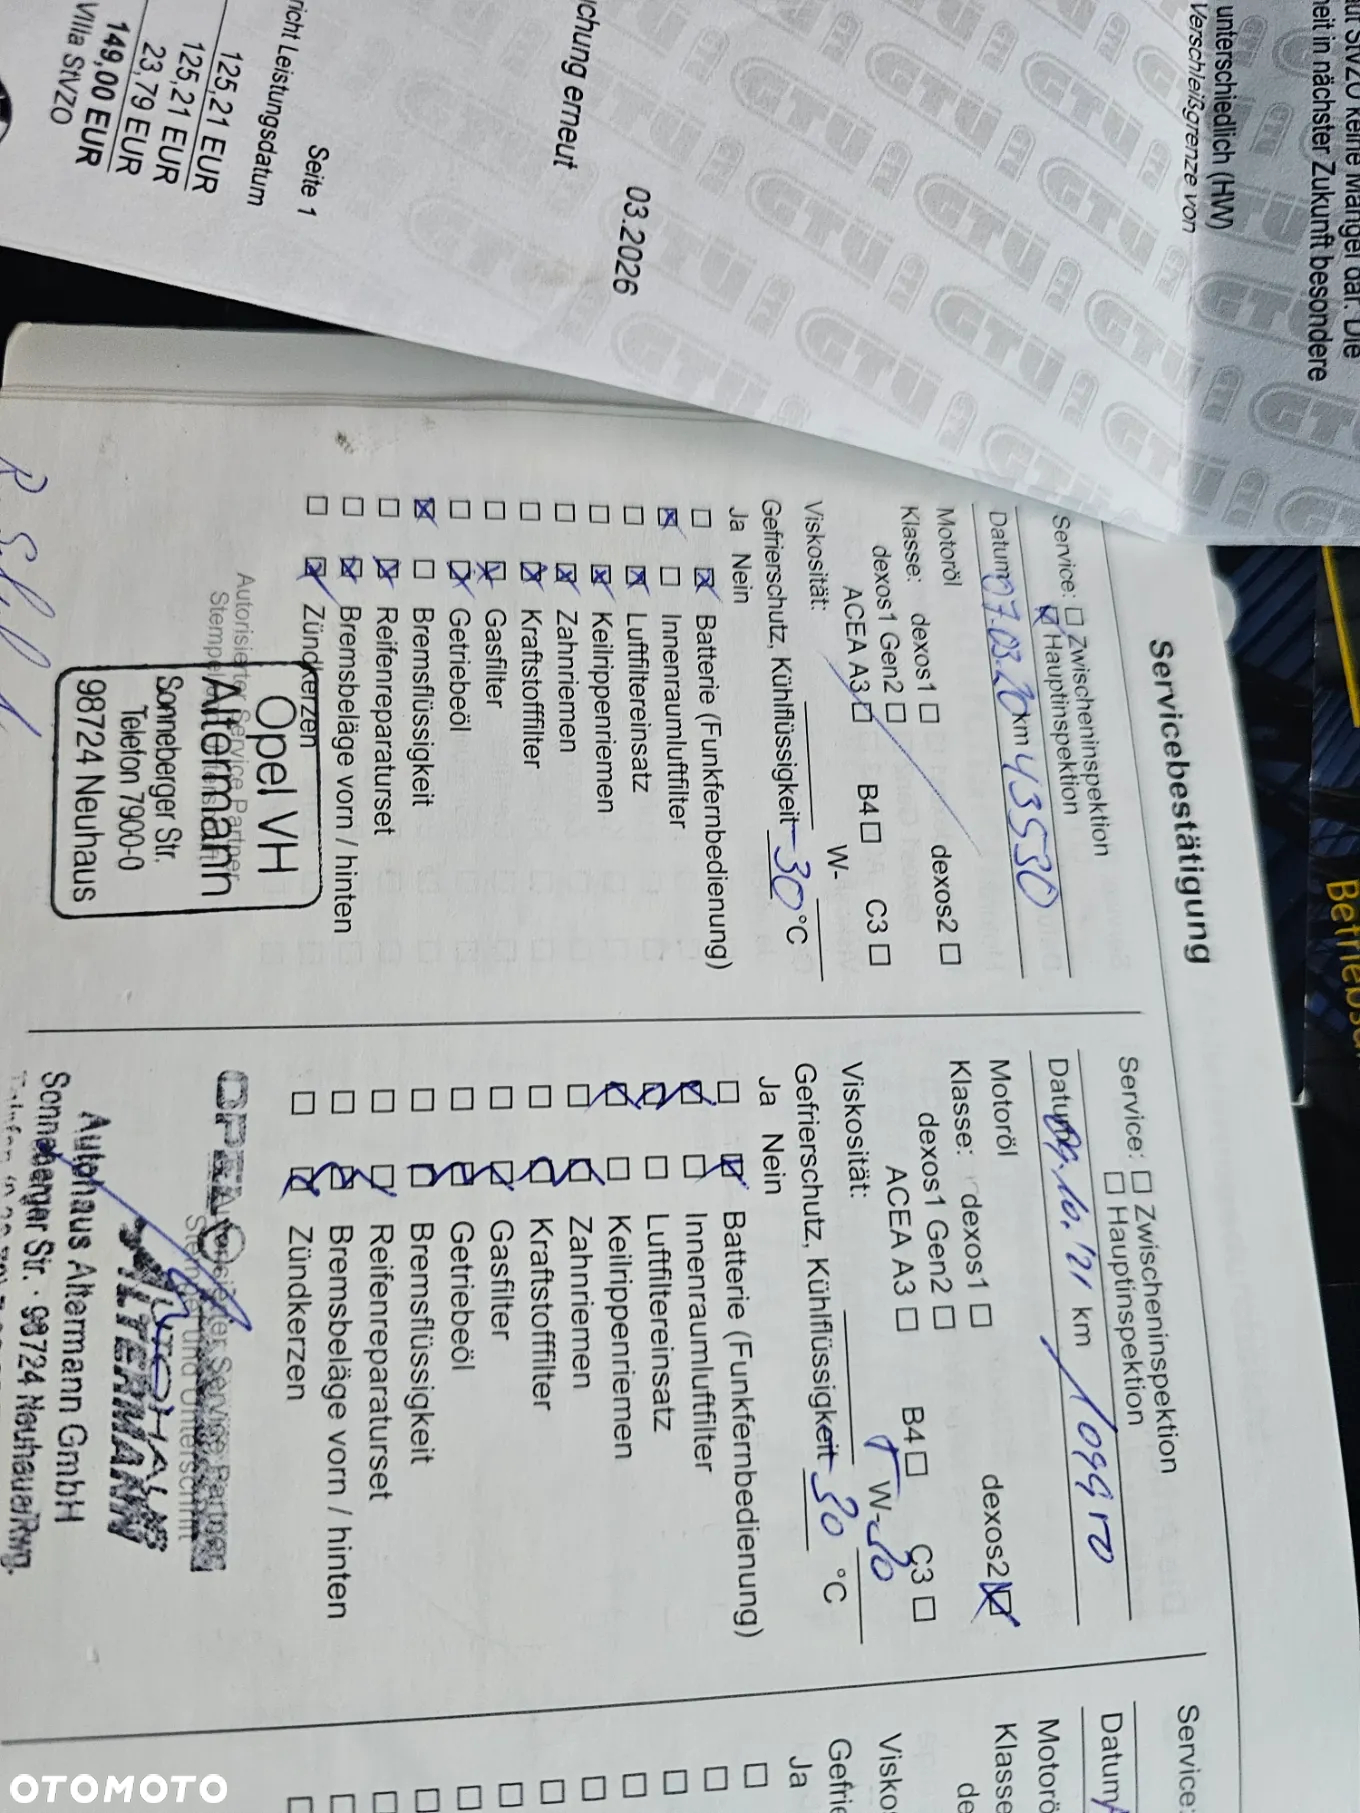 ut StVZO keine Mängel dar. Die
heit in nächster Zukunft besondere
unterschiedlich (HW)
Verschleißgrenze von
chung erneut
03.2026
Seite 1
richt Leistungsdatum
125,21 EUR
125,21 EUR
23,79 EUR
149,00 EUR
VIIIa StVZO
GTÜ
Servicebestätigung
Service: Zwischeninspektion
Hauptinspektion
Datum 07.03.20 km 43530
Motoröl
Klasse: dexos1 dexos2
dexos1 Gen2
ACEA A3 B4 C3
Viskosität: W-
Gefrierschutz, Kühlflüssigkeit -30 °C
Ja Nein
Batterie (Funkfernbedienung)
Innenraumluftfilter
Luftfiltereinsatz
Keilrippenriemen
Zahnriemen
Kraftstofffilter
Gasfilter
Getriebeöl
Bremsflüssigkeit
Reifenreparaturset
Bremsbeläge vorn / hinten
Zündkerzen
Autorisierter Service Partner
Opel VH
Altermann
Sonneberger Str.
Telefon 7900-0
98724 Neuhaus
Service: Zwischeninspektion
Hauptinspektion
Datum .10.'21 km
Motoröl
Klasse: dexos1 dexos2
dexos1 Gen2
ACEA A3 B4 C3
Viskosität: W-30
Gefrierschutz, Kühlflüssigkeit -30 °C
Ja Nein
Batterie (Funkfernbedienung)
Innenraumluftfilter
Luftfiltereinsatz
Keilrippenriemen
Zahnriemen
Kraftstofffilter
Gasfilter
Getriebeöl
Bremsflüssigkeit
Reifenreparaturset
Bremsbeläge vorn / hinten
Zündkerzen
OPEL
Service Partner
Stempel und Unterschrift
AUTOHAUS
ALTERMANN
Autohaus Altermann GmbH
Sonneberger Str. · 98724 Neuhaus/Rwg.
Service:
Datum
Motorö
Klasse
de
Visko
Gefrie
Ja
Betriebs
OTOMOTO